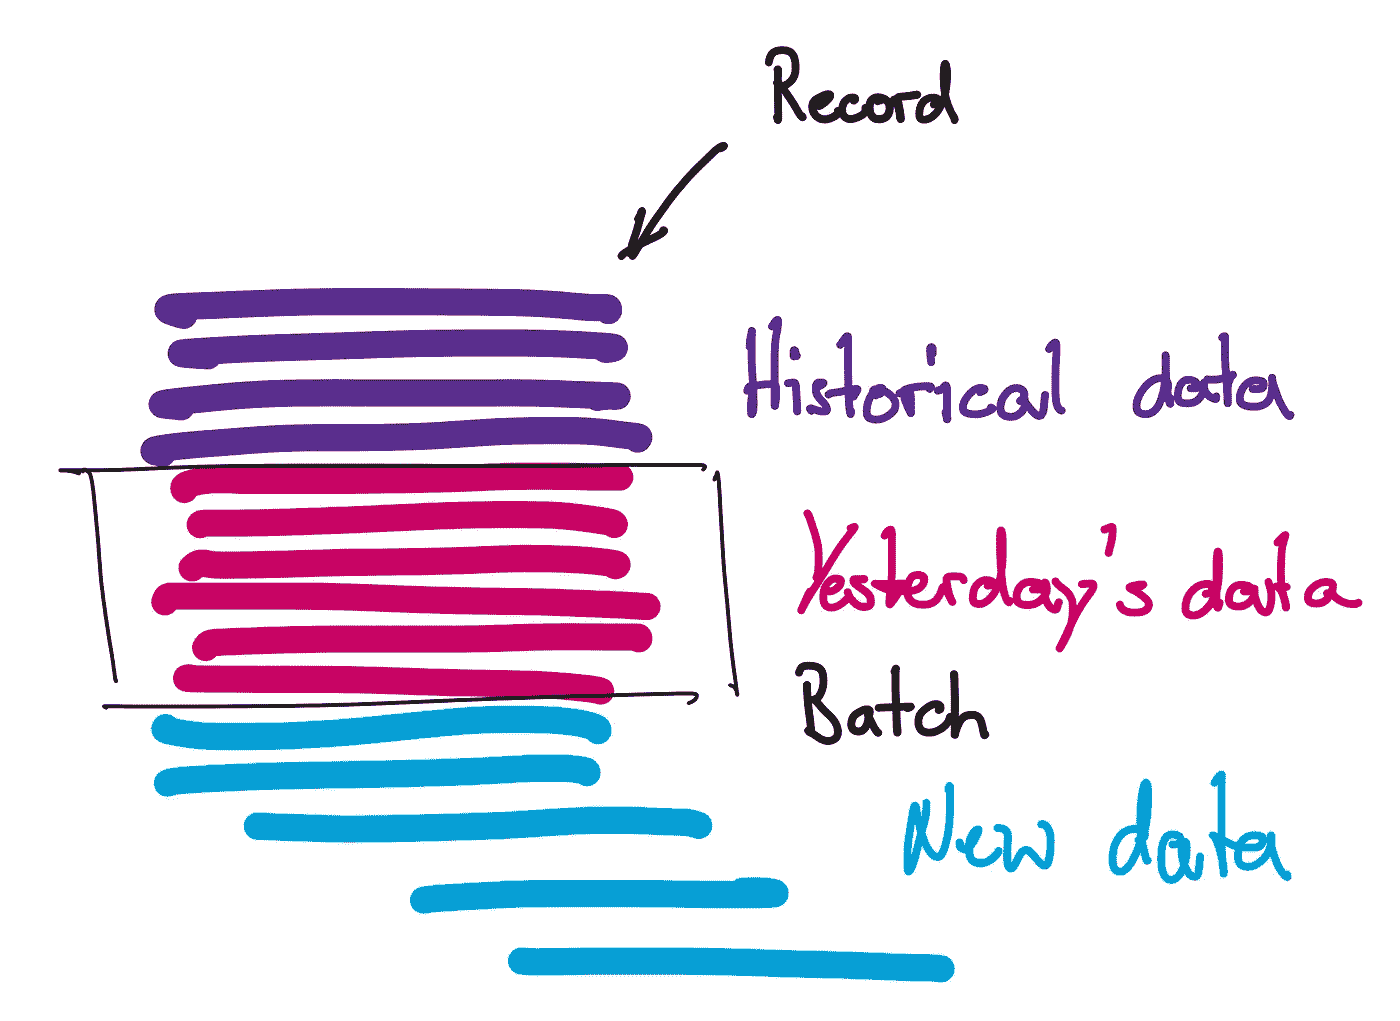 Record
Historical data
Yesterday's data
Batch
New data